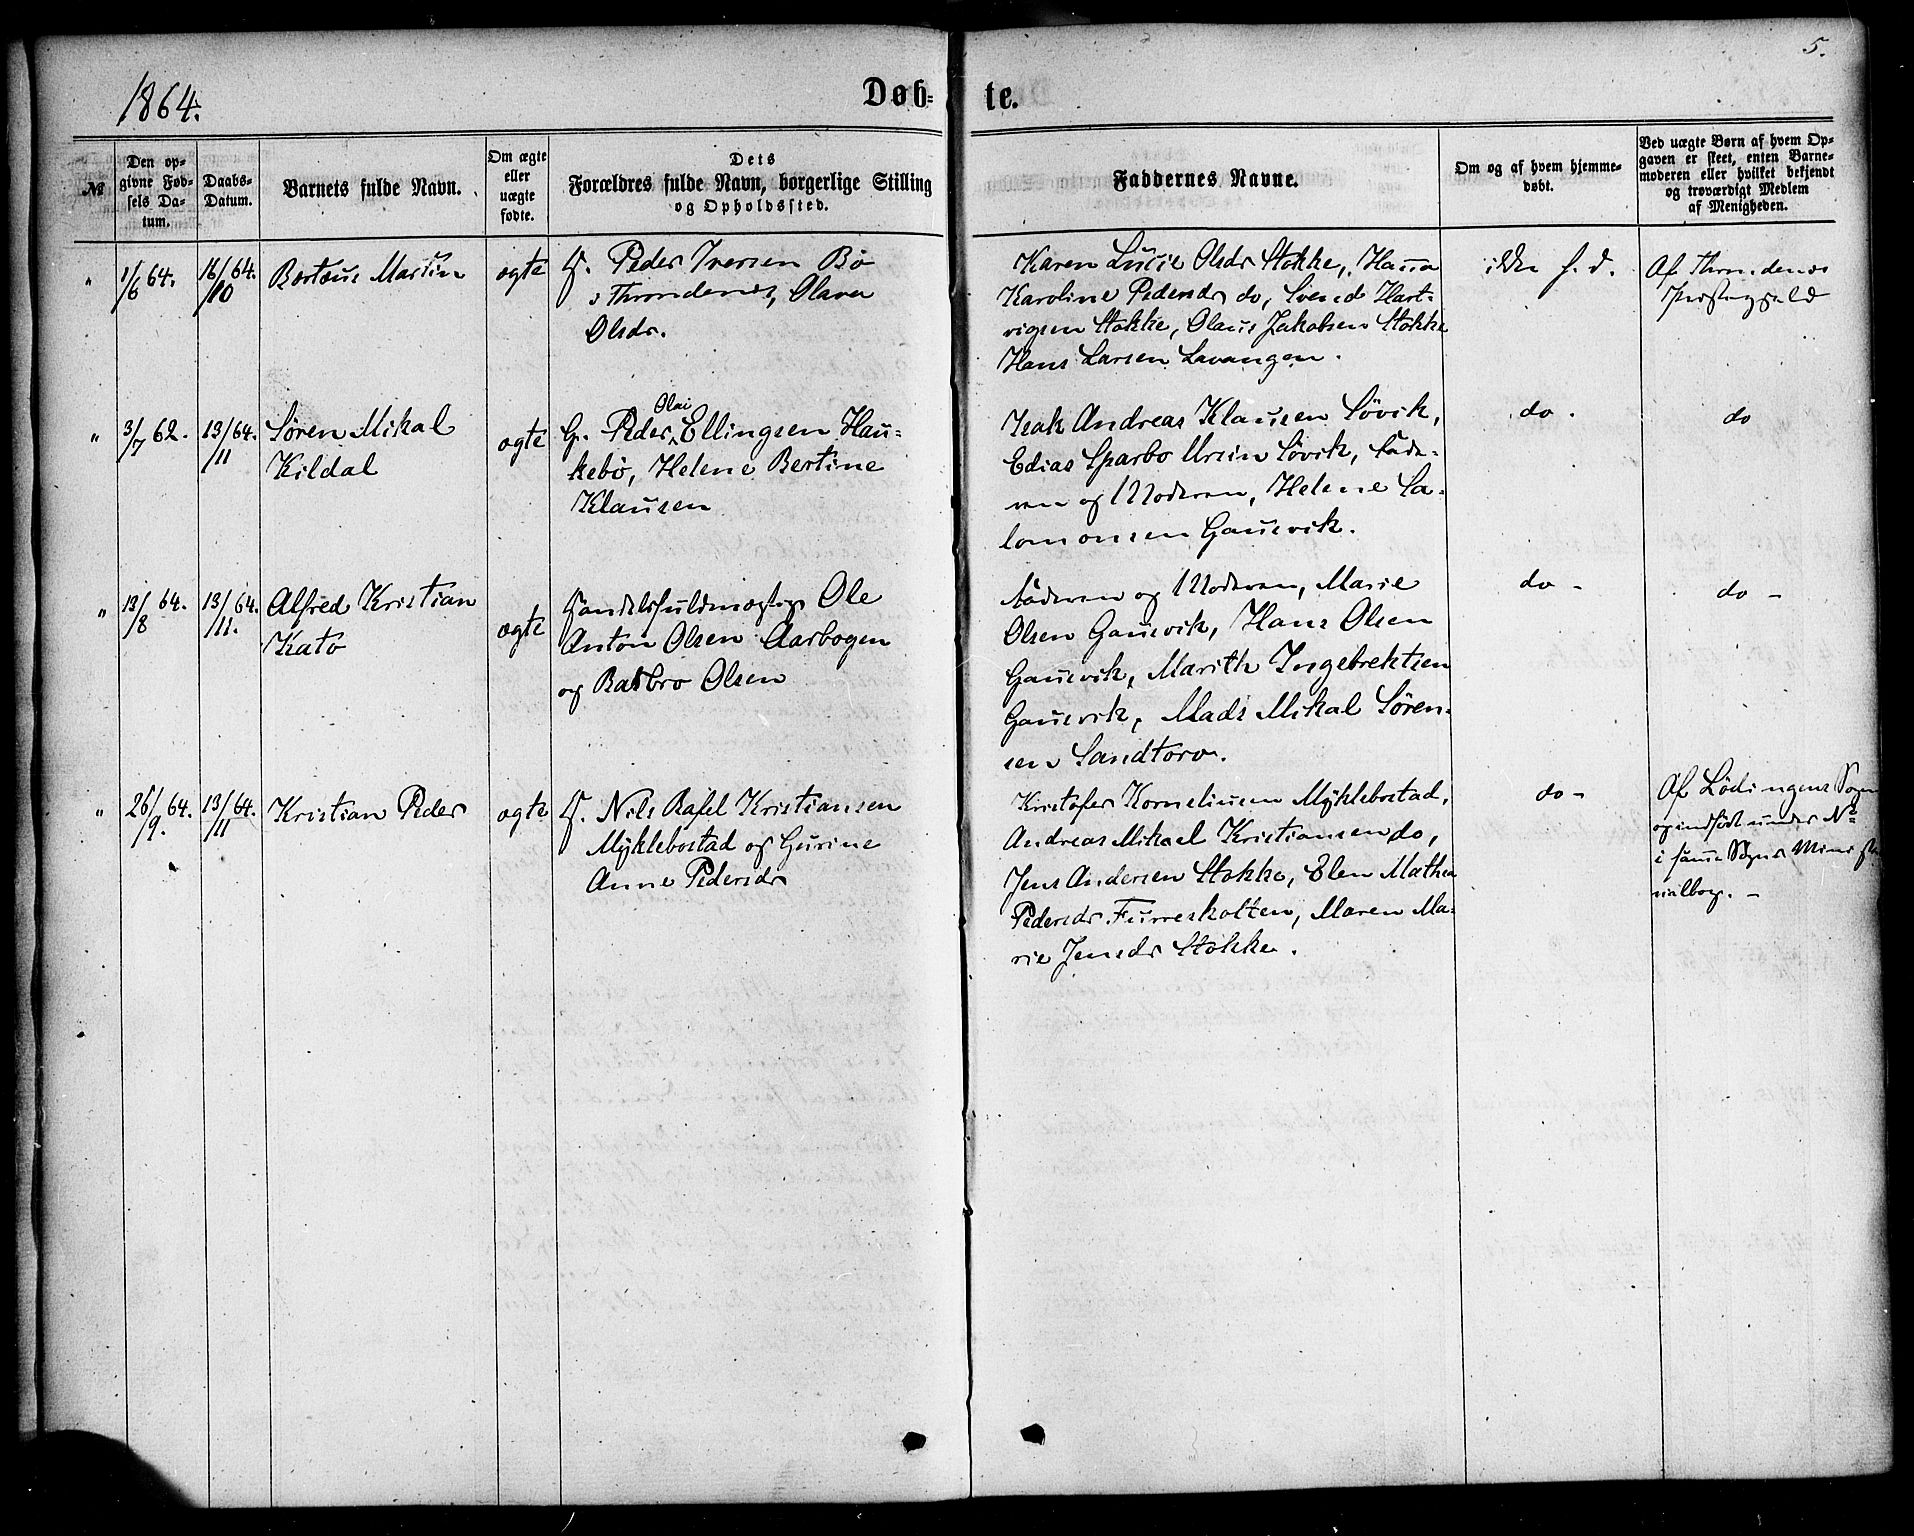 5.
1864.
Døb= te.
№
Den op=
givne Fød=
sels Da=
tum.
Daabs=
Datum.
Barnets fulde Navn.
Om ægte
eller
uægte
fødte.
Dets
Forældres fulde Navn, borgerlige Stilling
og Opholdssted.
Faddernes Navne.
Om og af hvem hjemme=
døbt.
Ved uægte Børn af hvem Op=
gaven er skeet, enten Barne=
moderen eller hvilket bekjendt
og troværdigt Medlem
af Menigheden.
" 1/6 64. 16/10 64. Berteus Martin ægte
G. Peder Iversen Bø
i Throndenes, Olava
Olsdr.
Karen Lucie Olsdr Stokke, Hanna
Karoline Pedersdr do, Svend Hart-
vigsen Stokke, Olaus Jakobsen Stokke
Hans Larsen Lavangen.
ikke h. d.
Af Throndenes
Præstegjeld
" 3/7 62. 13/11 64. Søren Mikal
Kildal
ægte
G. Peder Olai Ellingsen Hau-
kebø, Helene Bertine
Klausen
Isak Andreas Klausen Søvik,
Edias Sparbo Ursin Søvik, Fade-
ren og Moderen, Helene Sa-
lomonsen Gausvik.
do.
do
" 13/8 64. 13/11. 64. Alfred Kristian
Kato
ægte
Handelsfuldmægtig Ole
Anton Olsen Aarbogen
og Barbro Olsen
Faderen og Moderen, Marie
Olsen Gausvik, Hans Olsen
Gausvik, Marith Ingebrektsen
Gausvik, Mads Mikal Søren-
sen Sandtorv.
do -
do -
" 26/9. 64. 13/11 64. Kristian Peder ægte
G. Nils Rafel Kristiansen
Myklebostad og Gurine
Anne Pedersdr
Kristofer Korneliusen Myklebostad,
Andreas Mikael Kristiansen do,
Jens Andersen Stokke, Elen Mathea
Pedersdr Furreskolten, Maren Ma-
rie Jensdr Stokke.
do -
Af Lødingens Sogn
og indført under No
i samme Sogns Ministe
rialbog. -